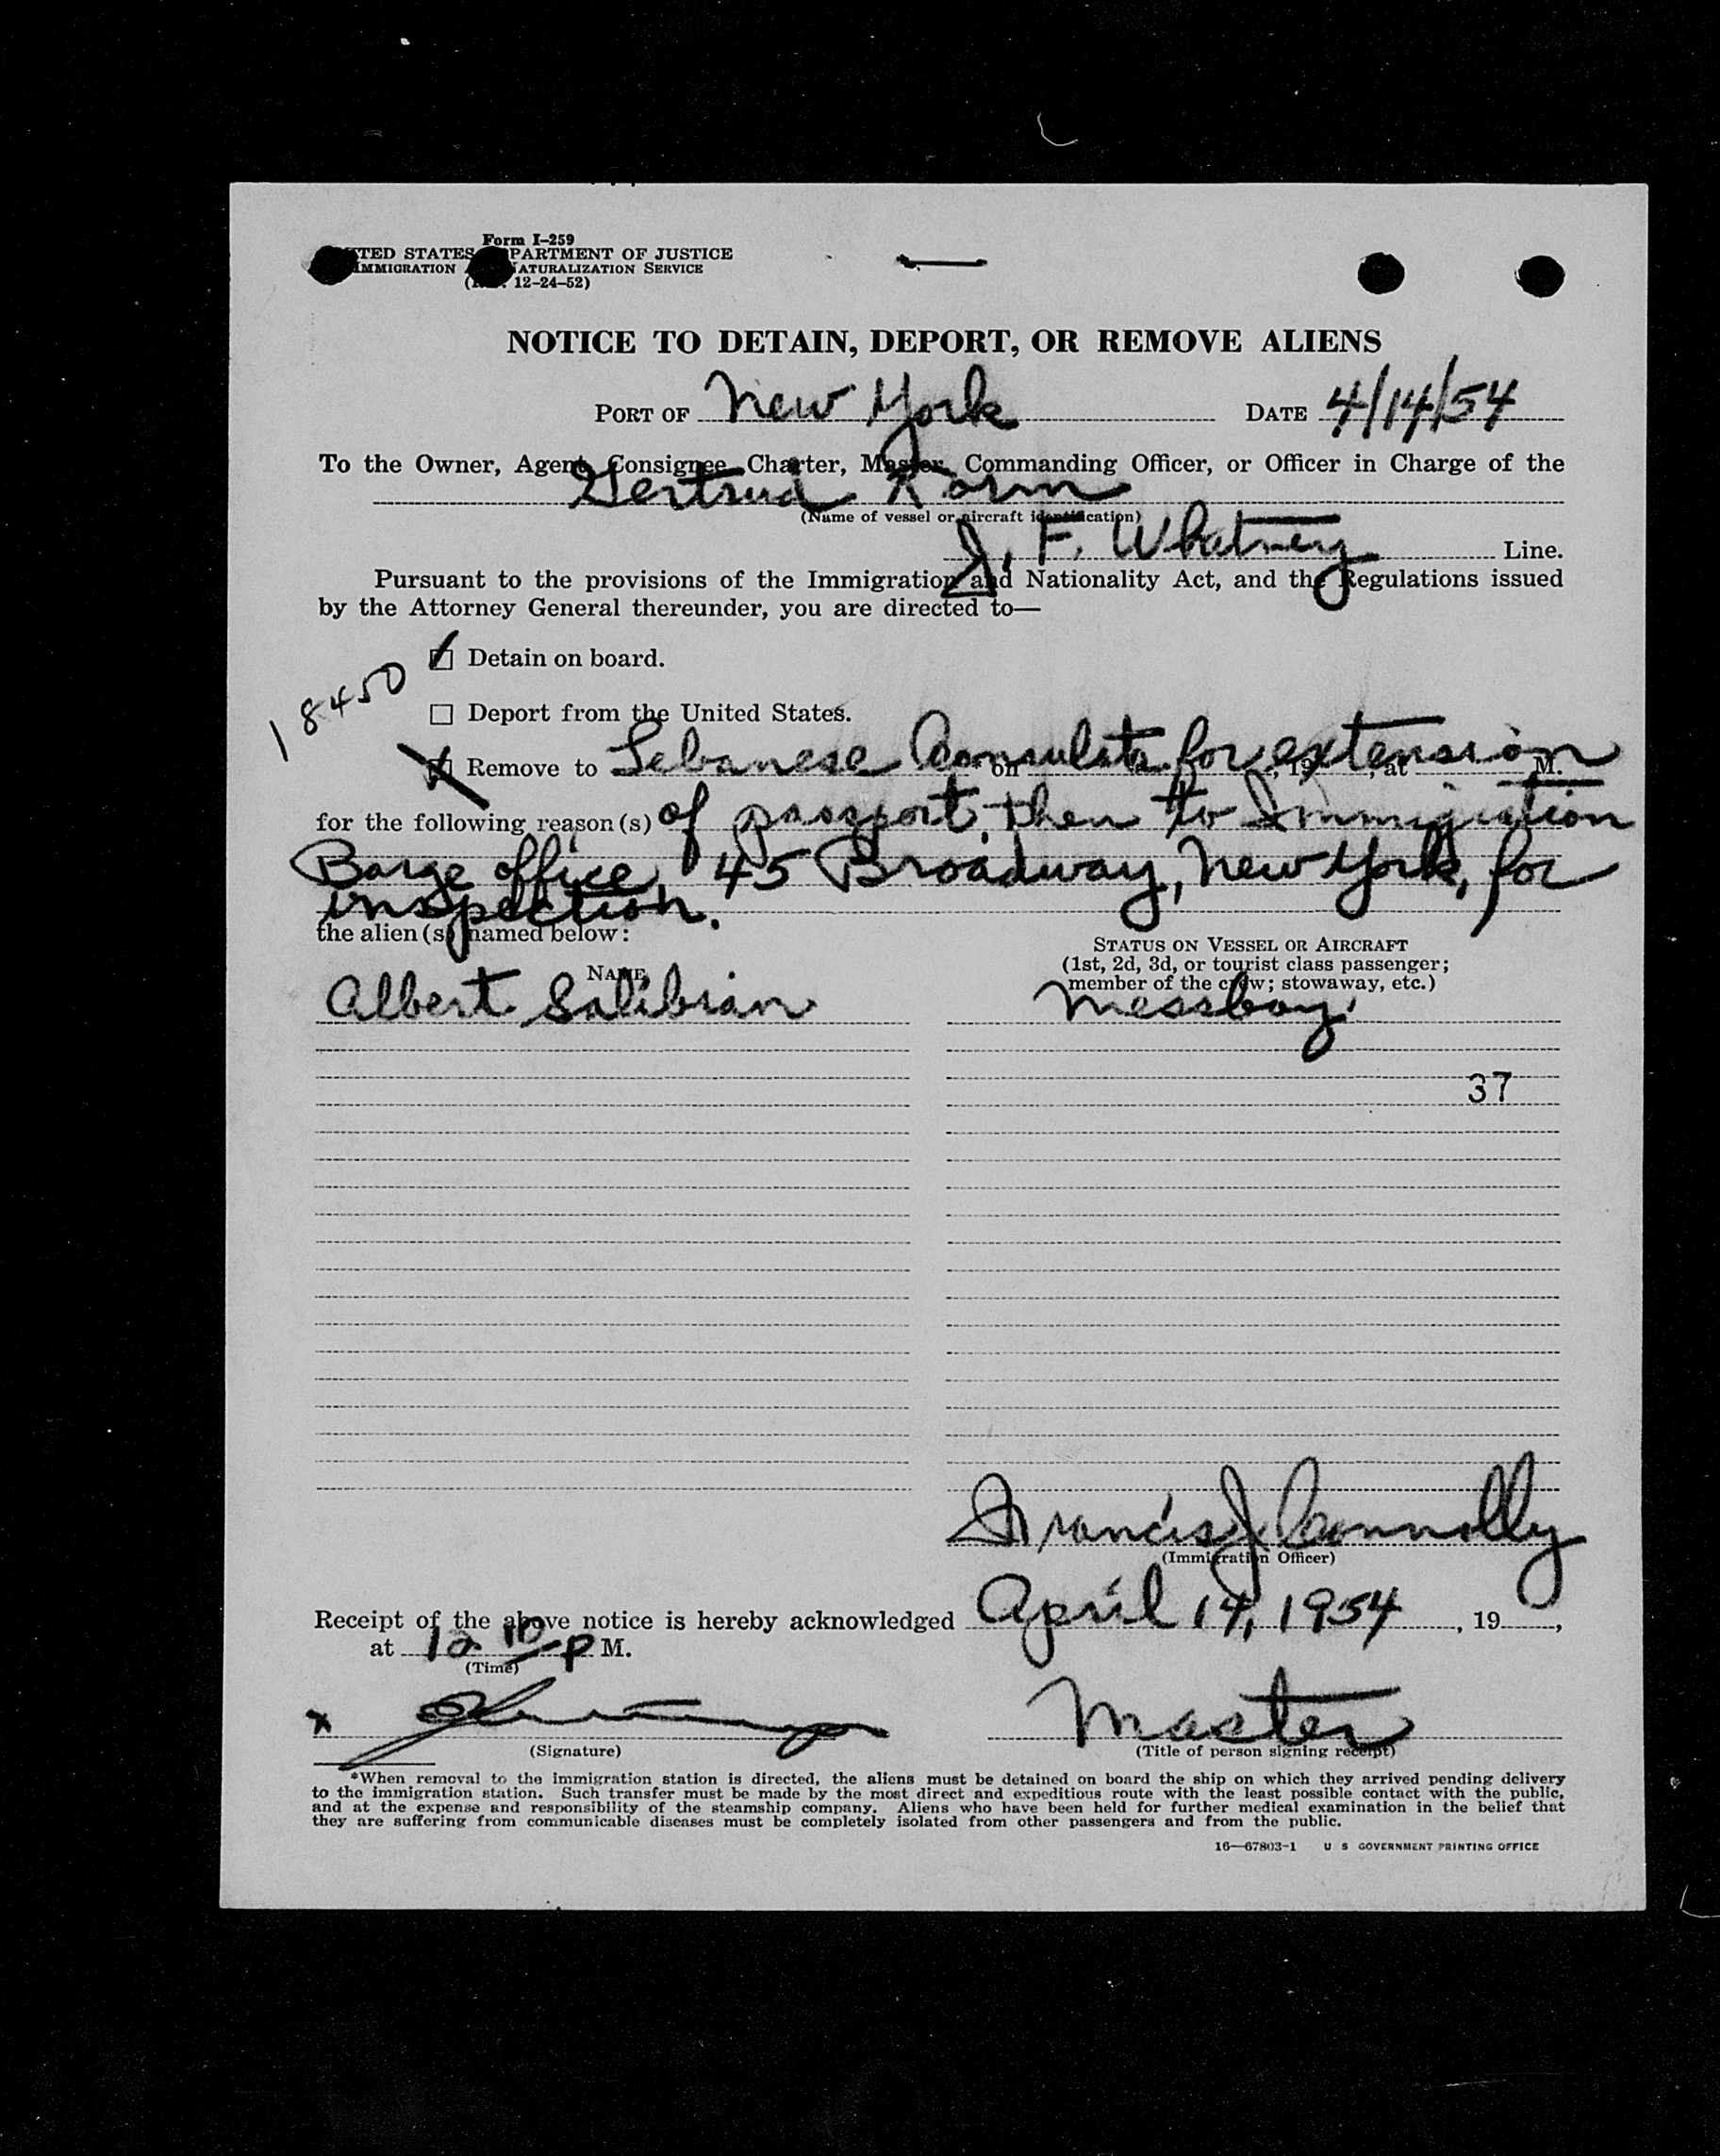 Form I-259
TED STATES PARTMENT OF JUSTICE
IMMIGRATION ATURALIZATION SERVICE
12-24-52)
NOTICE TO DETAIN, DEPORT, OR REMOVE ALIENS
PORT OF New York DATE 4/14/54
To the Owner, Agent, Consignee, Charter, Master, Commanding Officer, or Officer in Charge of the
Gertrud
(Name of vessel or aircraft identification)
J. F. Whatney Line.
Pursuant to the provisions of the Immigration and Nationality Act, and the Regulations issued
by the Attorney General thereunder, you are directed to—
Detain on board.
18450
Deport from the United States.
Remove to Lebanese Consulate for extension on , 19 , at M.
for the following reason(s) of passport, then to Immigration
Barge office, 45 Broadway, New York, for
inspection.
the alien(s) named below:
STATUS ON VESSEL OR AIRCRAFT
(1st, 2d, 3d, or tourist class passenger;
member of the crew; stowaway, etc.)
NAME
Albert Salibian messboy
37
Francis J Connolly
(Immigration Officer)
Receipt of the above notice is hereby acknowledged April 14, 1954, 19 ,
at 12 10 p M.
(Time)
x
Master
(Signature) (Title of person signing receipt)
*When removal to the immigration station is directed, the aliens must be detained on board the ship on which they arrived pending delivery
to the immigration station. Such transfer must be made by the most direct and expeditious route with the least possible contact with the public,
and at the expense and responsibility of the steamship company. Aliens who have been held for further medical examination in the belief that
they are suffering from communicable diseases must be completely isolated from other passengers and from the public.
16—67803-1 U S GOVERNMENT PRINTING OFFICE